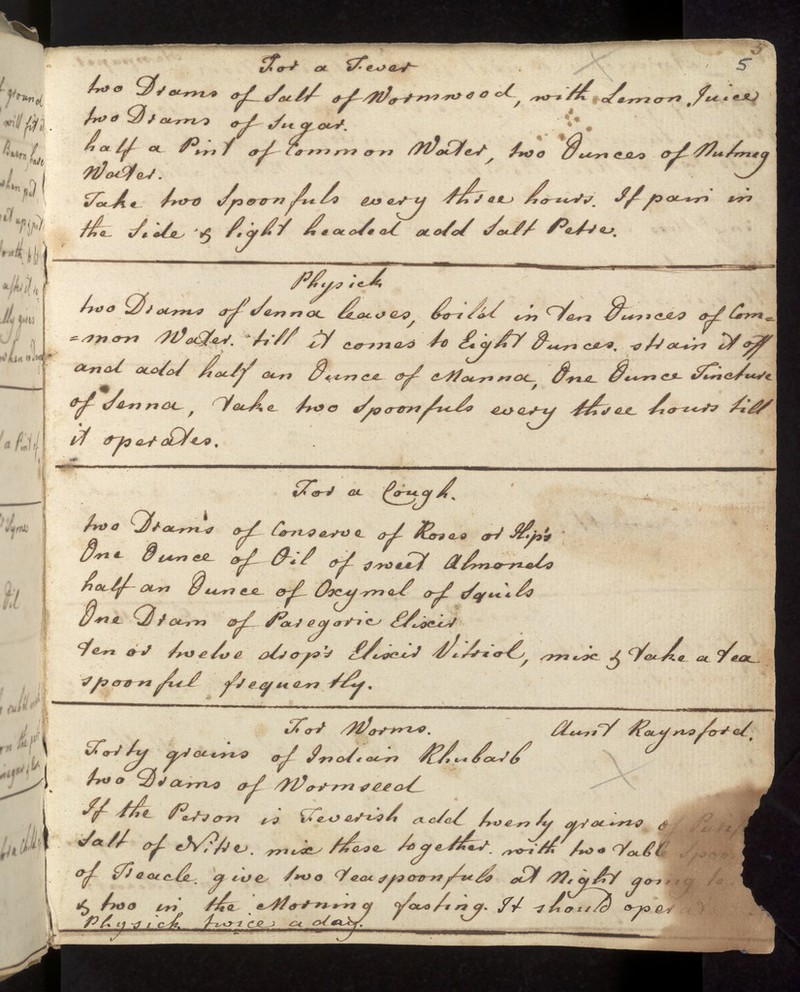 5
For a Fever
two Drams of Salt of Wormwood, with Lemon Juice
two Drams of Sugar.
half a Pint of Common Water, two Ounces of Nutmeg
Water.
Take two Spoonfuls every three hours. If pain in
the Side & light headed add Salt Petre.
Physick
two Drams of Senna leaves, boil'd in ten Ounces of Com=
=mon Water. till it comes to Eight Ounces. strain it off
and add half an Ounce of Manna, One Ounce Tincture
of Senna, take two Spoonfuls every three hours till
it operates.
For a Cough.
two Dram's of Conserve of Roses or Hip's
One Ounce of Oil of sweet Almonds
half an Ounce of Oxymel of Squils
One Dram of Paregoric Elixir
ten or twelve drop's Elixir Vitriol, mix & take a tea
spoonful frequently.
For Worms. Aunt Raynsford.
Forty grains of Indian Rhubarb
two Drams of Wormseed
If the Person is Feverish add twenty grains of
Salt of Nitre. mix these together. with two Tabl
of Treacle. give two teaspoonfuls at Night going to
& two in the Morning fasting. It should oper
Physick twice a day.